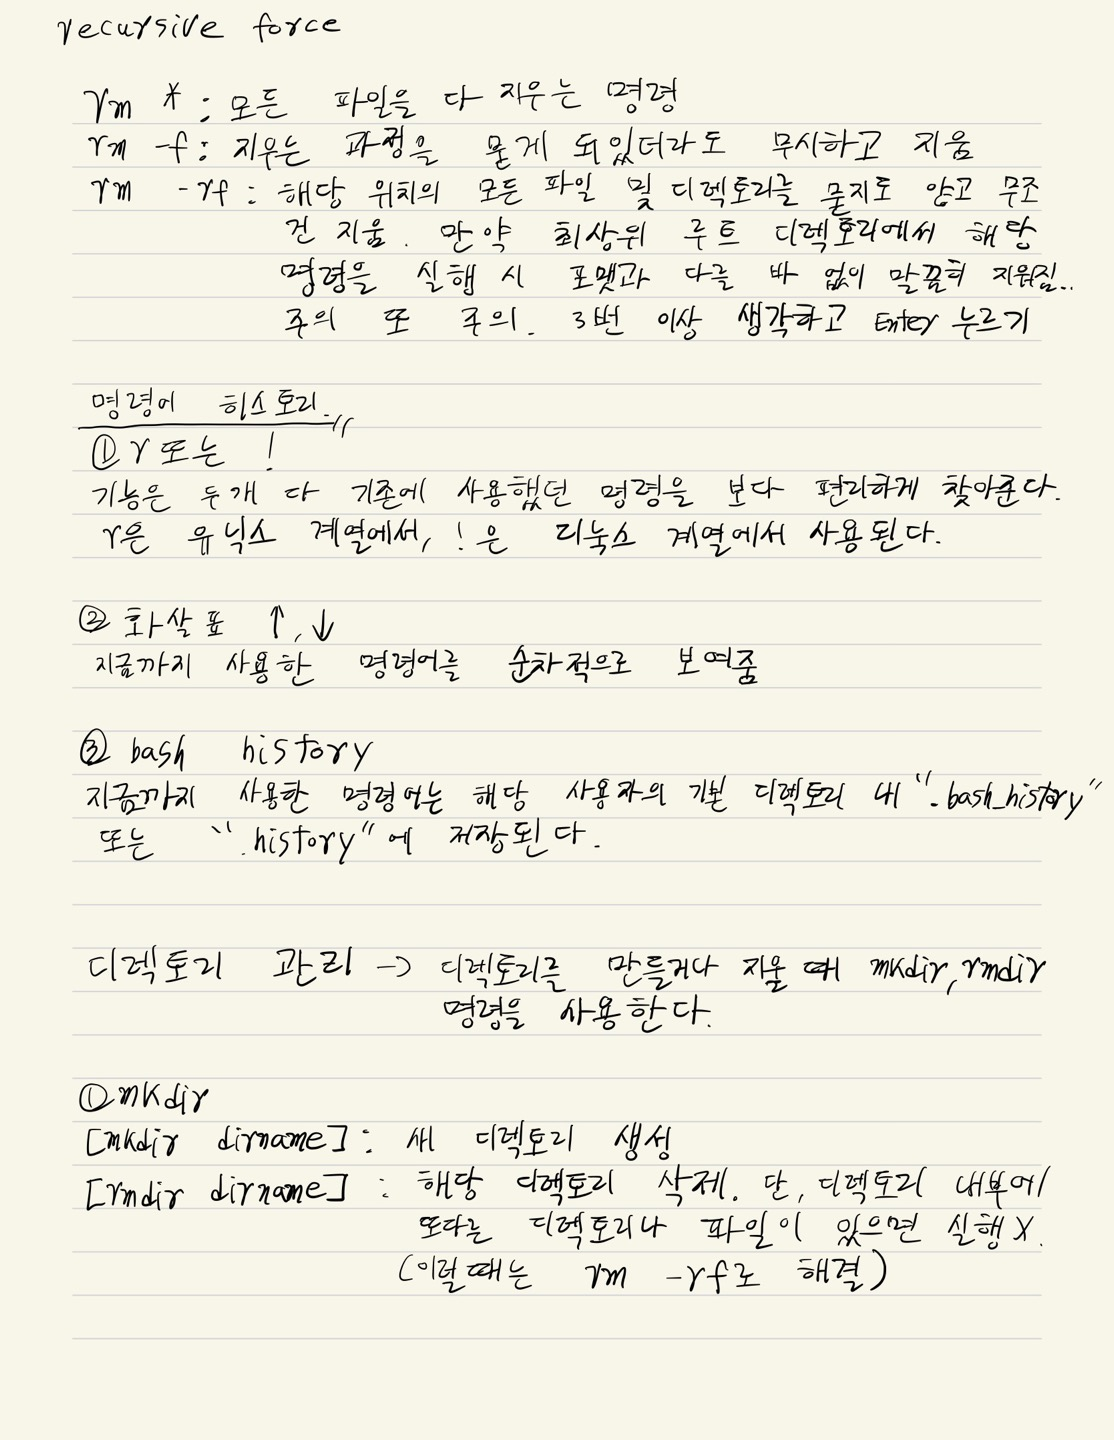 recursive force
rm * : 모든 파일을 다 지우는 명령
rm -f : 지우는 과정을 묻게 되있더라도 무시하고 지움
rm -rf : 해당 위치의 모든 파일 및 디렉토리를 묻지도 않고 무조
건 지움. 만약 최상위 루트 디렉토리에서 해당
명령을 실행 시 포멧과 다를 바 없이 말끔히 지워짐..
주의 또 주의. 3번 이상 생각하고 Enter 누르기
명령어 히스토리
① r 또는 !
기능은 두개 다 기존에 사용했던 명령을 보다 편리하게 찾아준다.
r은 유닉스 계열에서, !은 리눅스 계열에서 사용된다.
② 화살표 ↑, ↓
지금까지 사용한 명령어를 순차적으로 보여줌
③ bash history
지금까지 사용한 명령어는 해당 사용자의 기본 디렉토리 내 ".bash_history"
또는 ".history"에 저장된다.
디렉토리 관리 -> 디렉토리를 만들거나 지울 때 mkdir, rmdir
명령을 사용한다.
① mkdir
[mkdir dirname] : 새 디렉토리 생성
[rmdir dirname] : 해당 디렉토리 삭제. 단, 디렉토리 내부에
또다른 디렉토리나 파일이 있으면 실행 X.
(이럴때는 rm -rf로 해결)